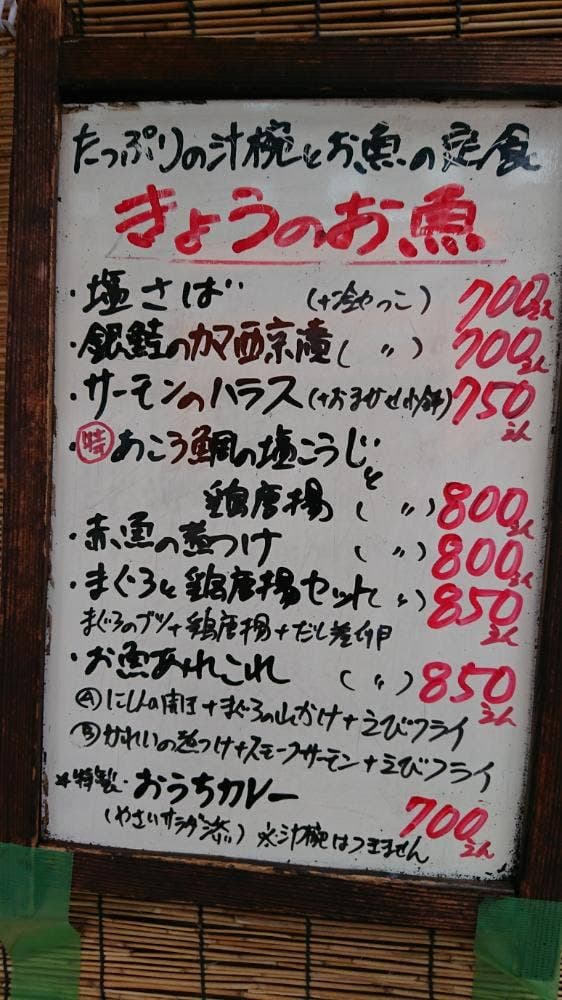 たっぷりの汁椀とお魚の定食
きょうのお魚
・塩さば (+冷やっこ) 700えん
・銀鮭のカマ西京漬 ( 〃 ) 700えん
・サーモンのハラス (+おまかせ小鉢) 750えん
・㊕あこう鯛の塩こうじと
鶏唐揚 ( 〃 ) 800えん
・赤魚の煮つけ ( 〃 ) 800えん
・まぐろと鶏唐揚セット( 〃 ) 850えん
まぐろのブツ+鶏唐揚+だし巻卵
・お魚あれこれ ( 〃 ) 850えん
Ⓐにしんの開き+まぐろの山かけ+えびフライ
Ⓑかれいの煮つけ+スモークサーモン+えびフライ
*特製・おうちカレー 700えん
(やさいサラダ添) ※汁椀はつきません